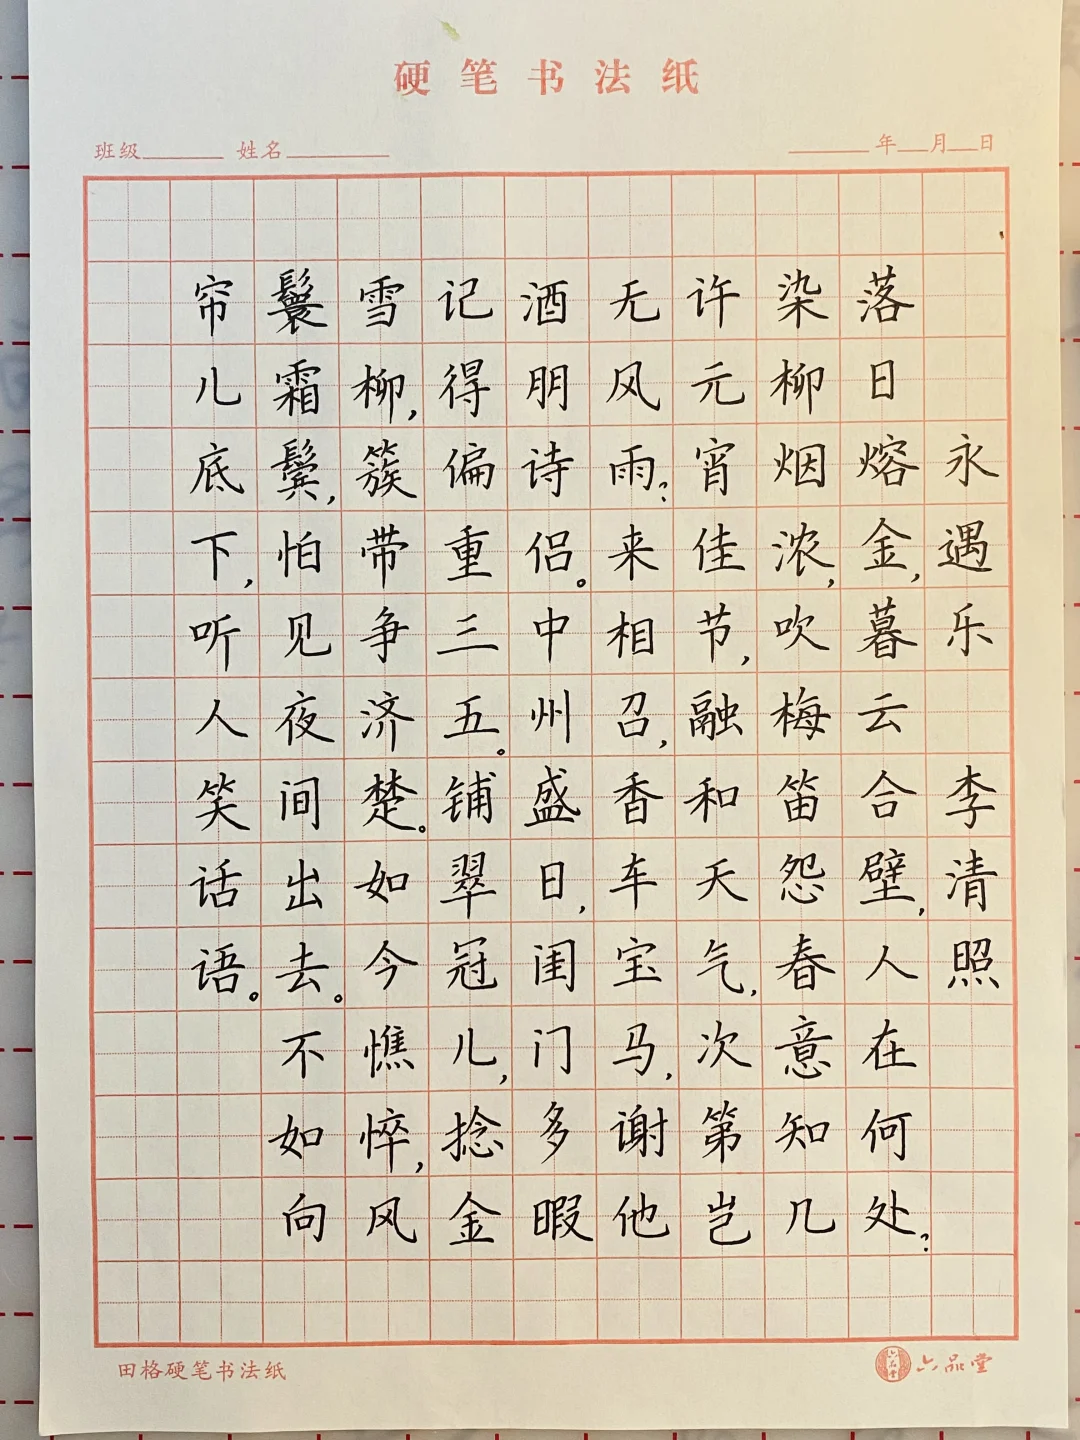 硬笔书法纸
班级 姓名 年 月 日
永遇乐 李清照
落日熔金,暮云合璧,人在何处?
染柳烟浓,吹梅笛怨春意知几
许元宵佳节,融和天气,次第岂
无风雨?来相召,香车宝马,谢他
酒朋诗侣。中州盛日,闺门多暇
记得偏重三五。铺翠冠儿,捻金
雪柳,簇带争济楚。如今憔悴,风
鬟霜鬓,怕见夜间出去。不如向
帘儿底下,听人笑话语。
田格硬笔书法纸 六品堂 六品堂